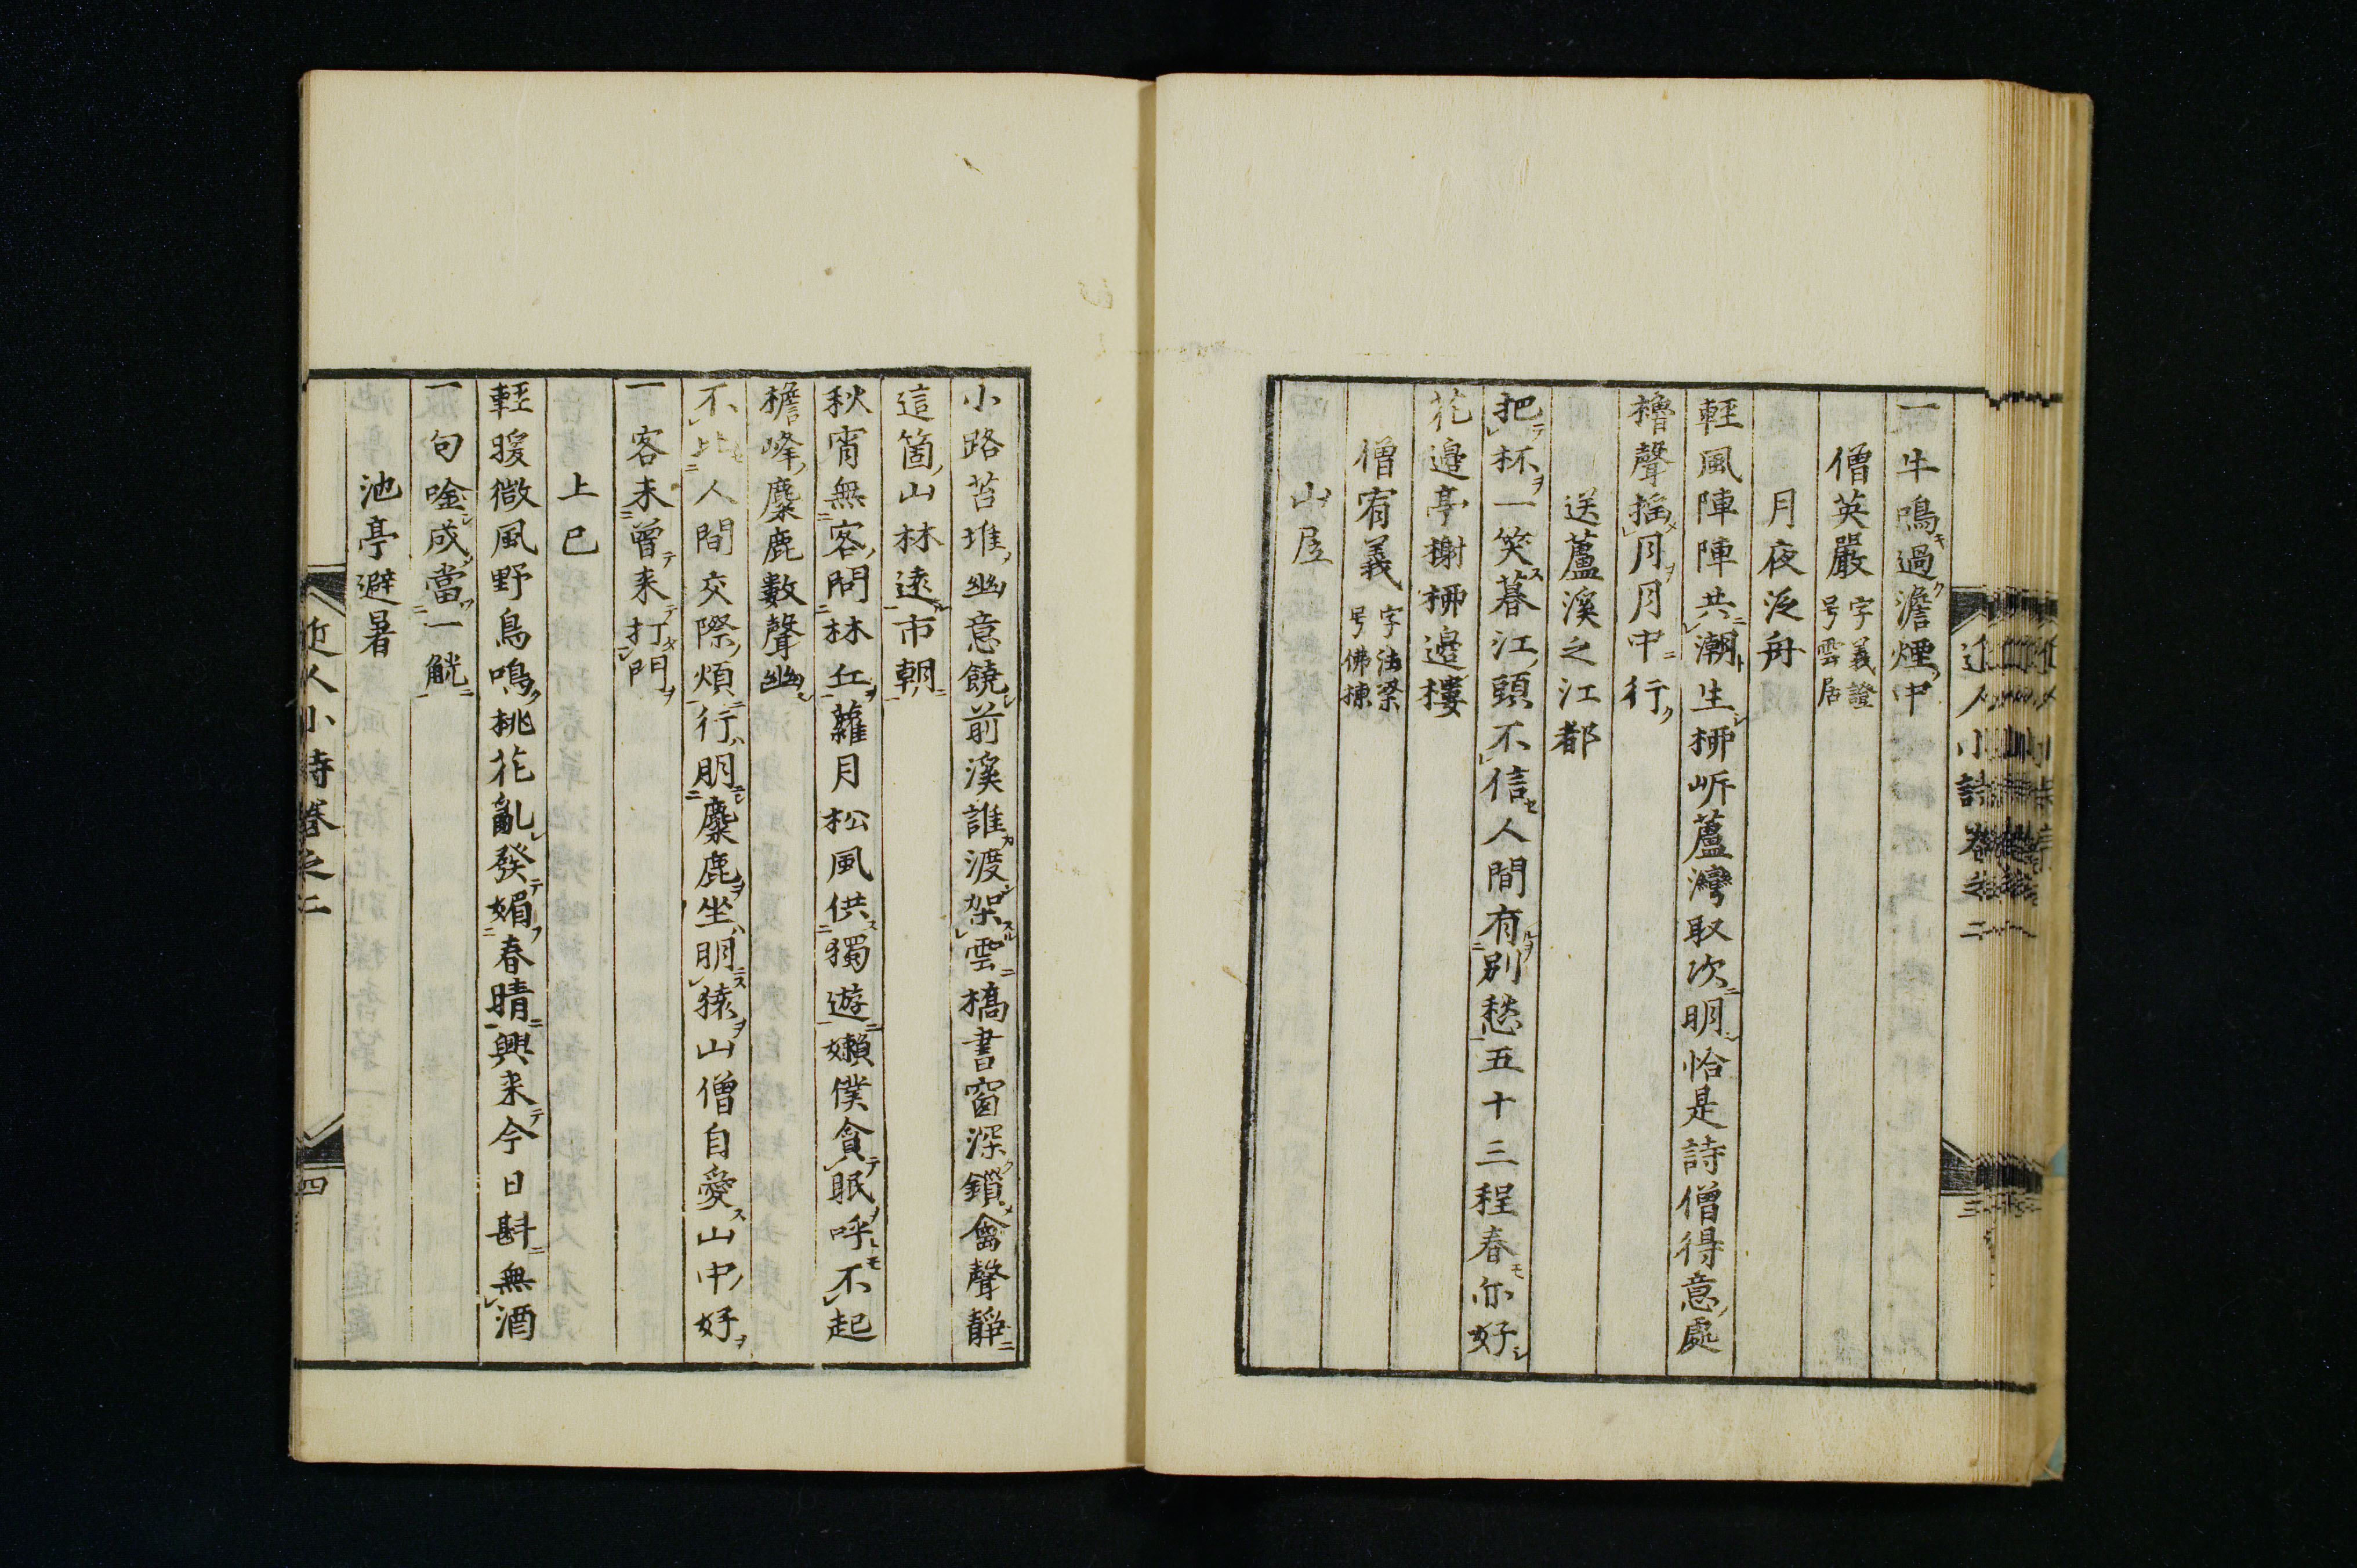 一牛鳴過澹煙中
僧英嚴 字義證号雲居
月夜泛舟
輕風陣陣共潮生柳岍蘆灣取次明恰是詩僧得意處
櫓聲搖月月中行
送蘆溪之江都
把杯一笑暮江頭不信人間有別愁五十三程春亦好
花邉亭榭柳邉樓
僧宥義 字法梁号佛揀
山居
近人小詩卷之二
三
小路苔堆幽意饒前溪誰渡架雲橋書窗深鎖禽聲靜
這箇山林遠市朝
秋宵無客問林丘蘿月松風供獨遊嬾僕貪眠呼不起
檐峰麋鹿數聲幽
不比人間交際煩行朋麋鹿坐朋猿山僧自愛山中好
一客未曾来打門
上巳
輕暖微風野鳥鳴桃花亂發媚春晴興来今日斟無酒
一句唫成當一觥
池亭避暑
近人小詩卷之二
四